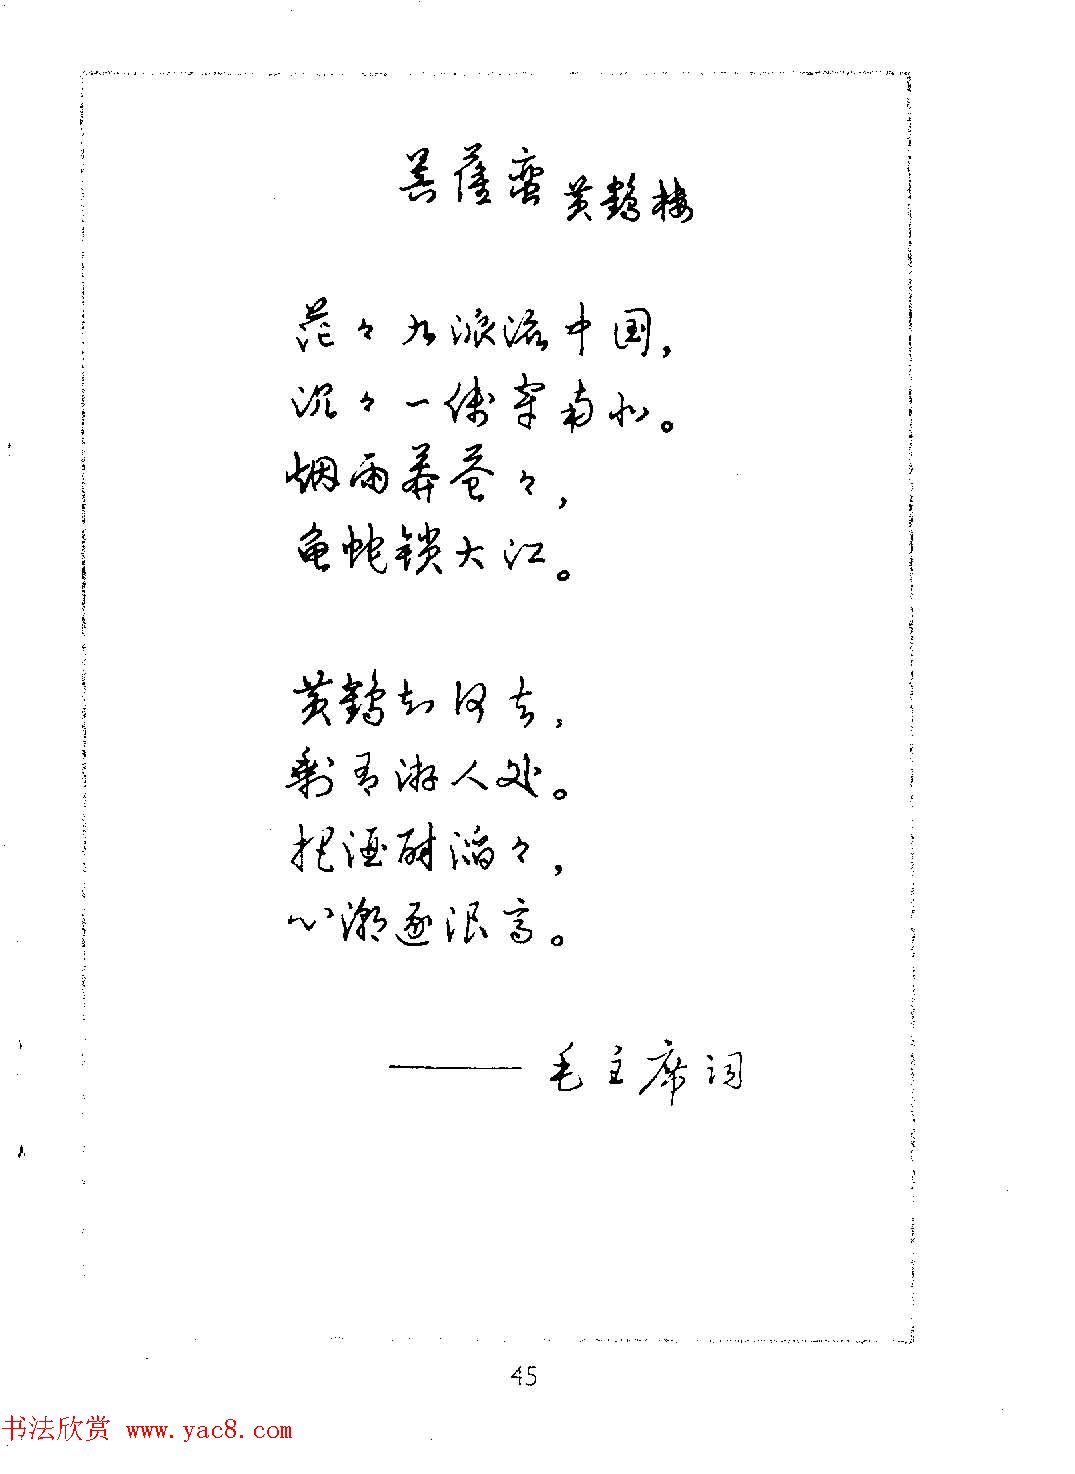 菩萨蛮 黄鹤楼
茫々九派流中国，
沉々一线穿南北。
烟雨莽苍々，
龟蛇锁大江。
黄鹤知何去，
剩有游人处。
把酒酎滔々，
心潮逐浪高。
——毛主席词
45
书法欣赏 www.yac8.com